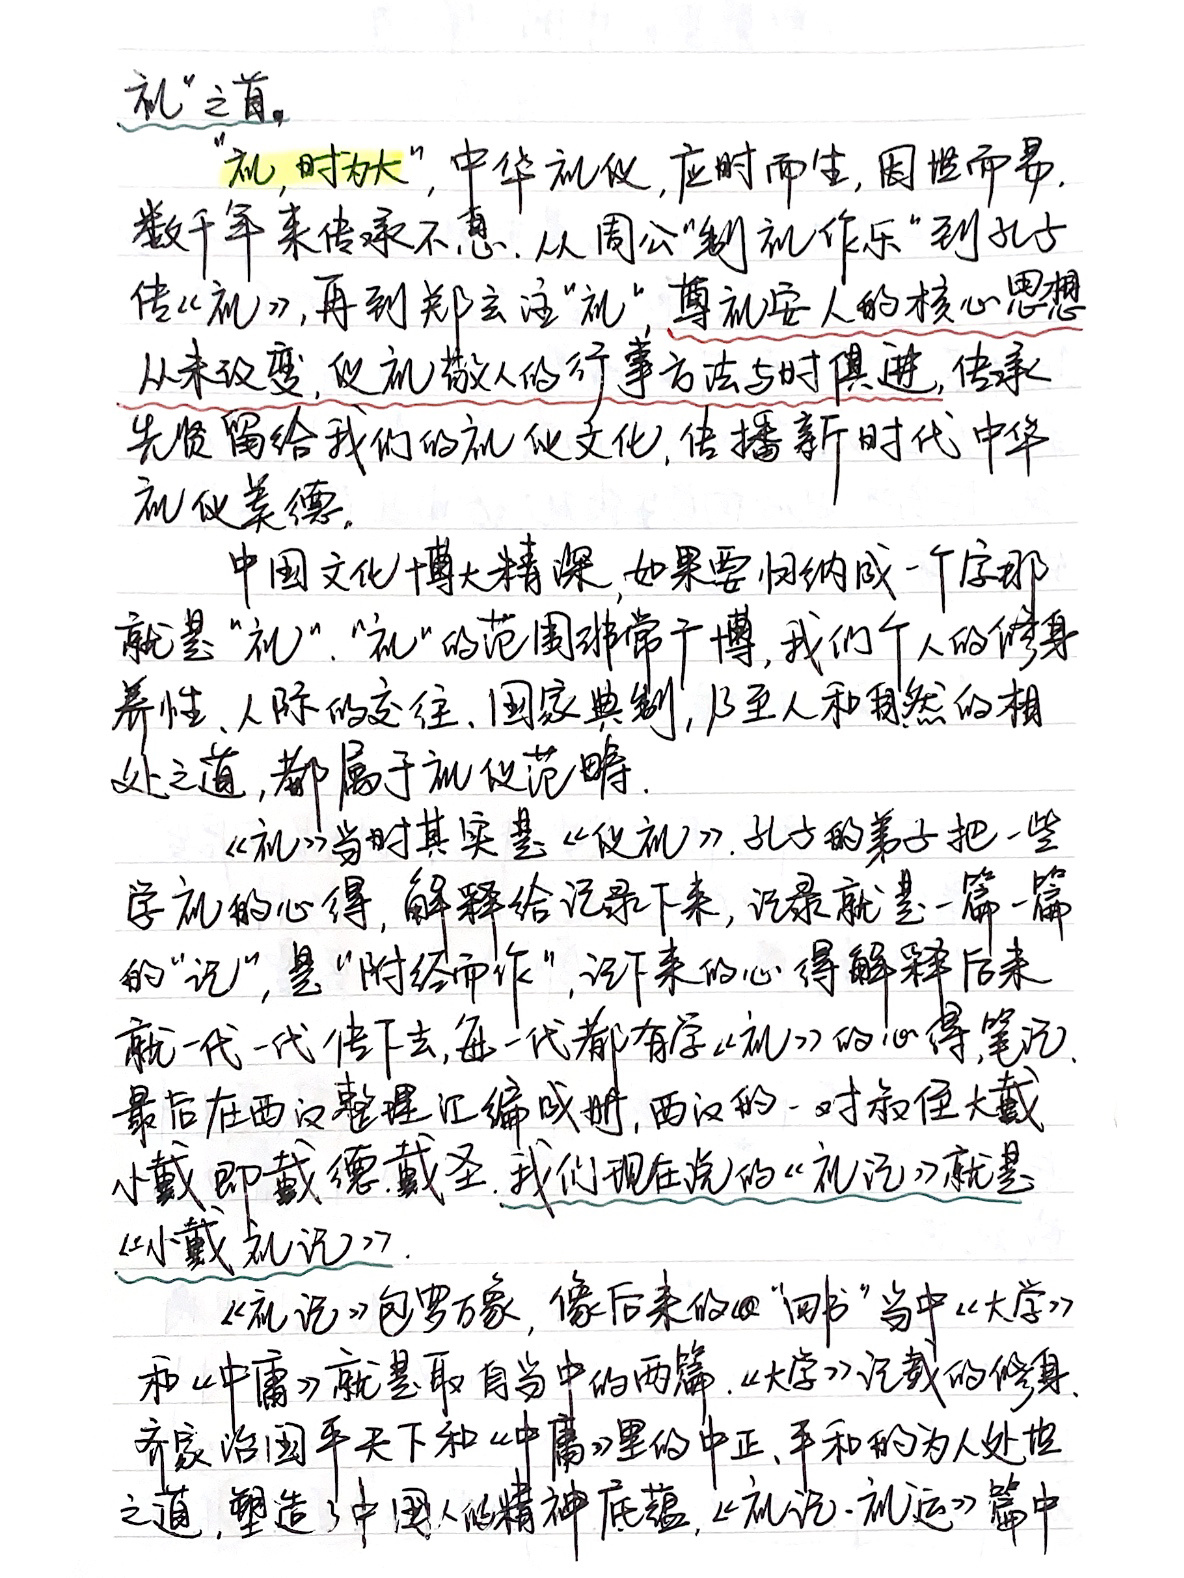 礼”之首。
“礼，时为大”，中华礼仪，应时而生，因世而易.
数千年来传承不息.从周公“制礼作乐”到孔子
传《礼》，再到郑玄注“礼”，尊礼安人的核心思想
从未改变，仪礼敬人的行事方法与时俱进，传承
先贤留给我们的礼仪文化，传播新时代中华
礼仪美德。
中国文化博大精深，如果要归纳成一个字那
就是“礼”.“礼”的范围非常广博，我们个人的修身
养性、人际的交往、国家典制，乃至人和自然的相
处之道，都属于礼仪范畴.
《礼》当时其实是《仪礼》.孔子的弟子把一些
学礼的心得，解释给记录下来，记录就是一篇一篇
的“记”，是“附经而作”，记下来的心得解释后来
就一代一代传下去，每一代都有学《礼》的心得、笔记.
最后在西汉整理汇编成册，西汉的一对叔侄大戴
小戴即戴德.戴圣.我们现在说的《礼记》就是
《小戴礼记》.
《礼记》包罗万象，像后来的“四书”当中《大学》
和《中庸》就是取自当中的两篇.《大学》记载的修身、
齐家治国平天下和《中庸》里的中正、平和的为人处世
之道，塑造了中国人的精神底蕴.《礼记·礼运》篇中